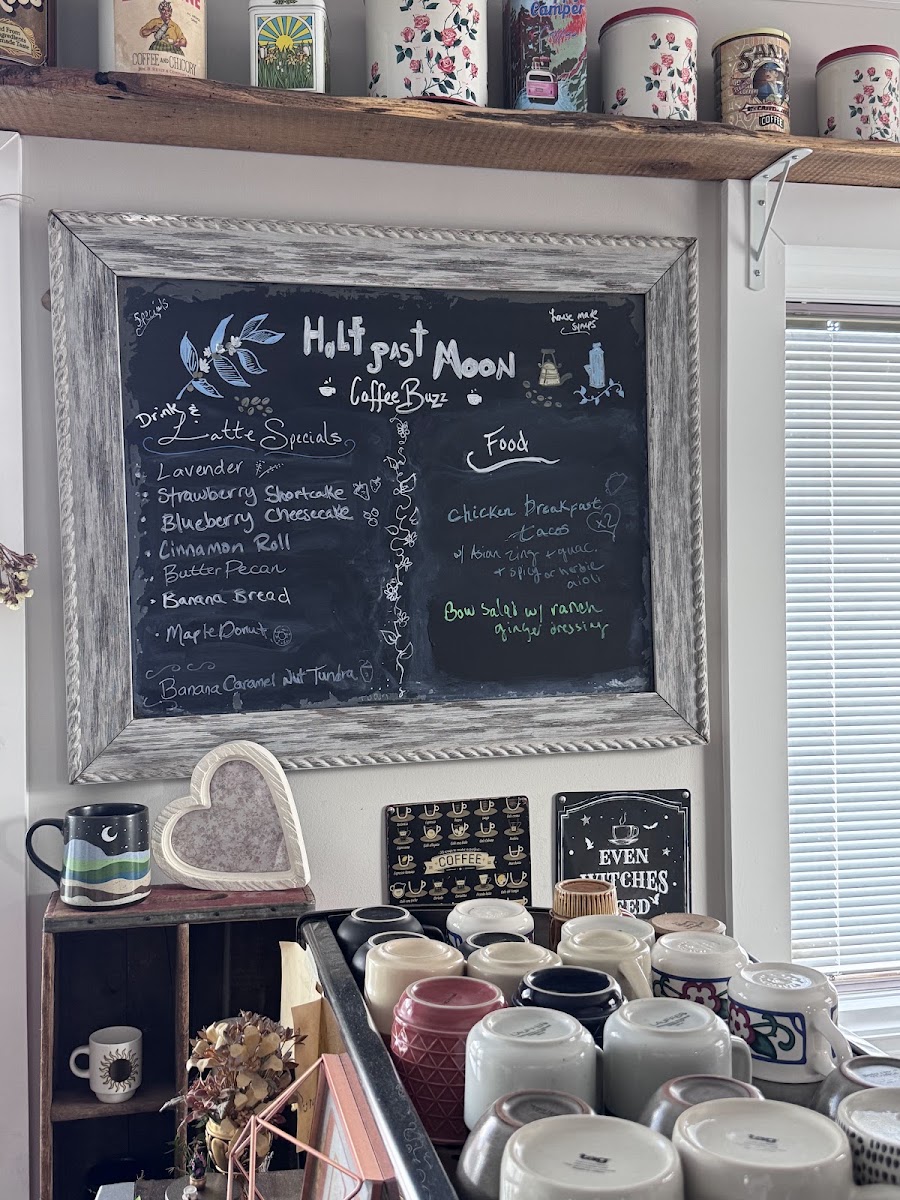 COFFEE AND CHICORY
Camper
SAN
COFFEE
Specials
house made
syrups
Half past Moon
Coffee Buzz
Drink &
Latte Specials
Lavender
Strawberry Shortcake
Blueberry Cheesecake
Cinnamon Roll
Butter Pecan
Banana Bread
Maple Donut
Banana Caramel Nut Tundra
Food
Chicken Breakfast
tacos x2
w/ Asian zing + guac.
+ spicy or herbie
aioli
Bow Salad w/ ranch
ginger dressing
COFFEE
EVEN
WITCHES
EED
tag
tag